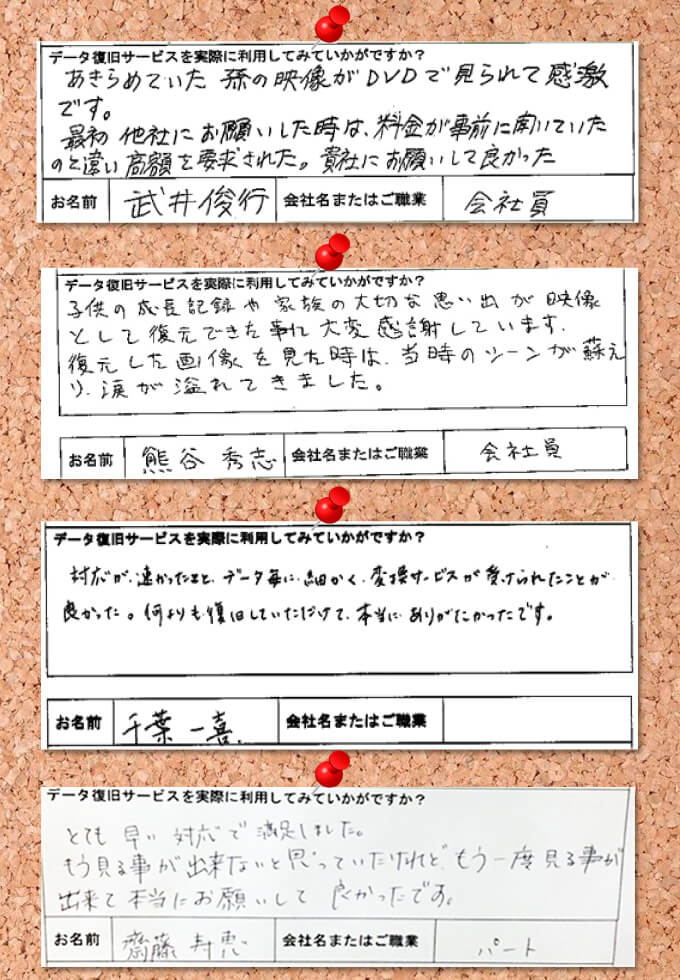 データ復旧サービスを実際に利用してみていかがですか？
あきらめていた 孫の映像がDVDで見られて感激
です。
最初 他社にお願いした時は、料金が事前に聞いていた
のと違い高額を要求された。貴社にお願いして良かった
お名前 武井俊行 会社名またはご職業 会社員
データ復旧サービスを実際に利用してみていかがですか？
子供の成長記録や家族の大切な思い出が映像
として復元できた事に大変感謝しています.
復元した画像を見た時は、当時のシーンが蘇え
り、涙が溢れてきました。
お名前 熊谷 秀志 会社名またはご職業 会社員
データ復旧サービスを実際に利用してみていかがですか？
対応が、速かったこと、データ毎に、細かく、変換サービスが受けられたことが
良かった。何よりも復旧していただけて、本当に、ありがたかったです。
お名前 千葉 一喜. 会社名またはご職業
データ復旧サービスを実際に利用してみていかがですか？
とても 早い 対応で 満足しました。
もう見る事が出来ないと思っていたけれど、もう一度見る事が
出来て本当にお願いして 良かったです。
お名前 齋藤 寿恵 会社名またはご職業 パート